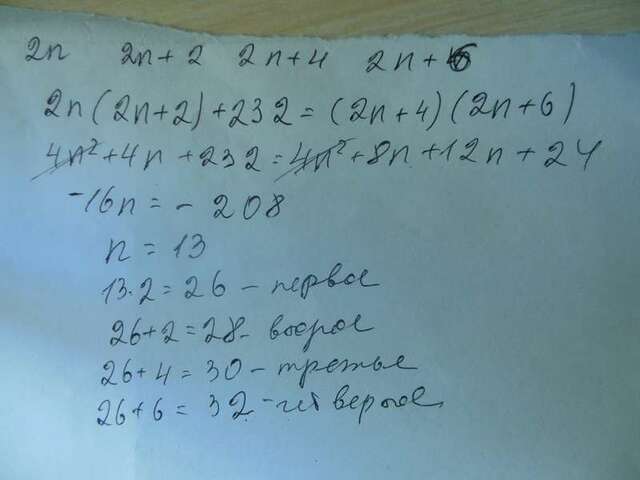 2n 2n+2 2n+4 2n+6
2n(2n+2)+232=(2n+4)(2n+6)
4n²+4n+232=4n²+8n+12n+24
-16n=-208
n=13
13·2=26-первое
26+2=28-второе
26+4=30-третье
26+6=32-четвертое